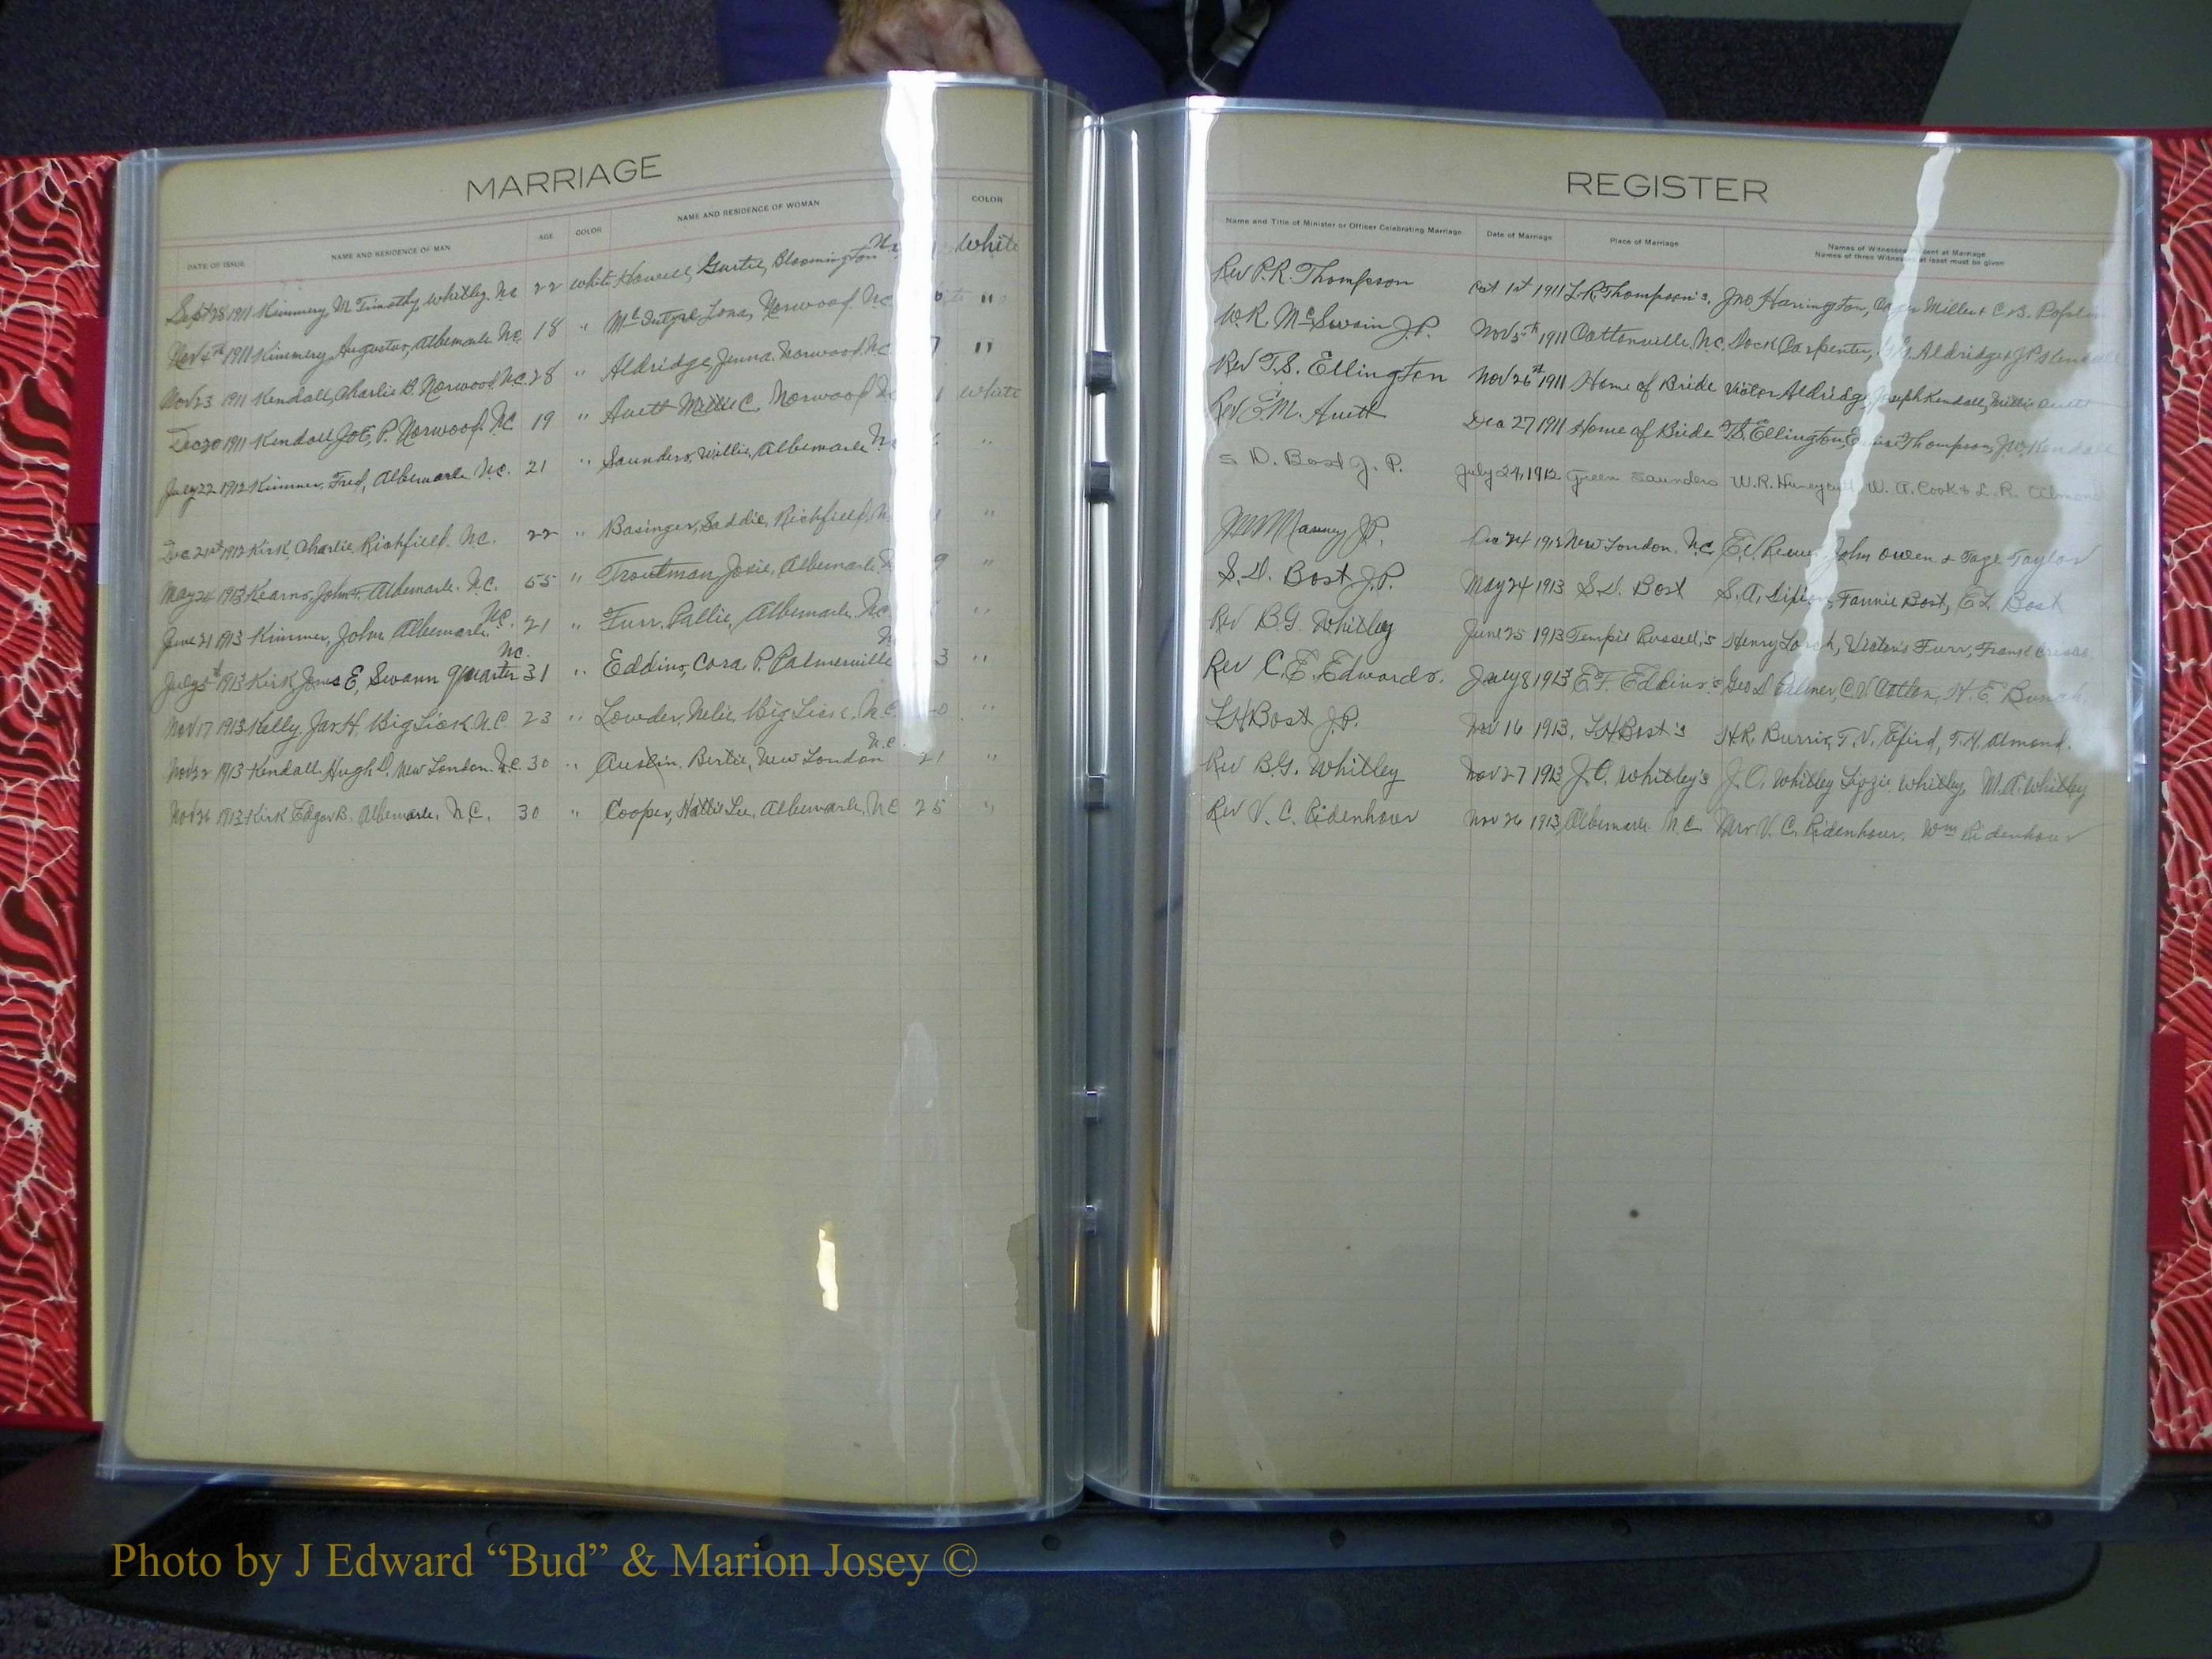 MARRIAGE
DATE OF ISSUE NAME AND RESIDENCE OF MAN AGE COLOR NAME AND RESIDENCE OF WOMAN COLOR
Sept 28 1911 Kimmery, M Timothy, Whitley. NC 22 white Howell, Gurtie, Bloomington White
Nov 4th 1911 Kimmery, Augustus, Albemarle NC. 18 " McIntyre, Lona, Norwood NC "
Nov 23 1911 Kendall, Charlie B. Norwood NC. 28 " Aldridge, Jenna. Norwood NC "
Dec 20 1911 Kendall Joe, P. Norwood. NC 19 " Avett Millie C. Norwood White
July 22 1912 Kimmer, Fred, Albemarle N.C. 21 " Saunders, Willie, Albemarle "
Dec 21st 1912 Kirk, Charlie, Richfield. N.C. 22 " Basinger, Saddie, Richfield, "
May 24 1913 Kearns, John F. Albemarle. N.C. 55 " Troutman, Josie, Albemarle "
June 21 1913 Kimmer, John Albemarle NC. 21 " Furr, Pallie, Albemarle, NC "
July 5th 1913 Kirk, James E, Swann Quarter NC. 31 " Eddins, Cora. P. Palmerville "
Nov 17 1913 Kelly, Jas H. Big Lick N.C. 23 " Lowder, Nelie. Big Lick. N.C "
Nov 22 1913 Kendall, Hugh D. New London. N.C. 30 " Austin. Bertie, New London N.C. 21 "
Nov 26 1913 Kirk Edgar B. Albemarle, N.C. 30 " Cooper, Hattie Lee, Albemarle, NC 25 "
REGISTER
Name and Title of Minister or Officer Celebrating Marriage Date of Marriage Place of Marriage Names of Witnesses Present at Marriage
Names of three Witnesses at least must be given
Rev P.R. Thompson Oct 1st 1911 L.R. Thompson's, Jno Harrington, Miller & C.B.
W.R. McSwain J.P. Nov 5th 1911 Cottonville, N.C. Dock Carpenter, Aldridge & J.P.
Rev T.S. Ellington Nov 26th 1911 Home of Bride Victor Aldridge, Joseph Kendall, Avett
Rev E.M. Avett Dec 27 1911 Home of Bride T.S. Ellington, Thompson, Kendall
S D. Bost J.P. July 24, 1912 Green Saunders W.R. Huneycutt, W. A. Cook & L. R. Almond
Mauney J.P. Dec 24 1912 New London. N.C. John Owen & Tage Taylor
S.D. Bost J.P. May 24 1913 S.D. Bost S.A. Fannie Bost, E.L. Bost
Rev B.G. Whitley June 25 1913 Tempie Russell's Henry Furr, Frank
Rev C.E. Edwards. July 8 1913 E.F. Eddins's Geo D Palmer, C.V. Cotton, H.E. Bunch.
L.H. Bost J.P. Nov 16 1913, L.H. Bost's H.R. Burris, T.V. Efird, T.H. Almond.
Rev B.G. Whitley Nov 27 1913 J.O. Whitley's J.O. Whitley Lizzie Whitley, M.A. Whitley
Rev V. C. Ridenhour Nov 26 1913 Albemarle N.C. Mrs V. C. Ridenhour, Wm Ridenhour
Photo by J Edward “Bud” & Marion Josey ©